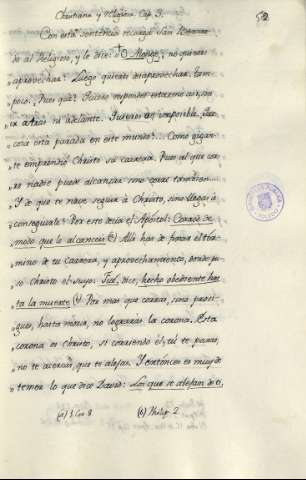 Christiano y Religioso. Cap. 3.
52
Con esta sentencia recarga San Bernardo
do al Religioso, y le dice: O Monge, no quieres
aprovechar? Luego quieres desaprovechar. Tam
poco. Pues qué?
ni adelante. Quieres un imposible. Que
cosa está parada en este mundo?... Como gigan
te emprendió Christo su carrera. Pues al que cor
re nadie puede alcanzar sino corre tambien.
Y de que te sirve seguir á Christo, sino llegas á
conseguirle? Por esto decia el Apostol: Corred de
modo que le alcanceis (a) Alli has de fixar el tér
mino de tu carrera, y aprovechamiento, donde pu
so Christo el suyo. Fue, dice, hecho obediente has
ta la muerte (b) Por mas que corras, sino prosi
gues, hasta morir, no lograrás la corona. Esta
corona es Christo, si corriendo él, tú te paras,
no te acercas, que te alejas. Y entonces es muy de
temer lo que dice David: Los que se alejan de ti,
(a) 1. Cor. 9 (b) Philip. 2